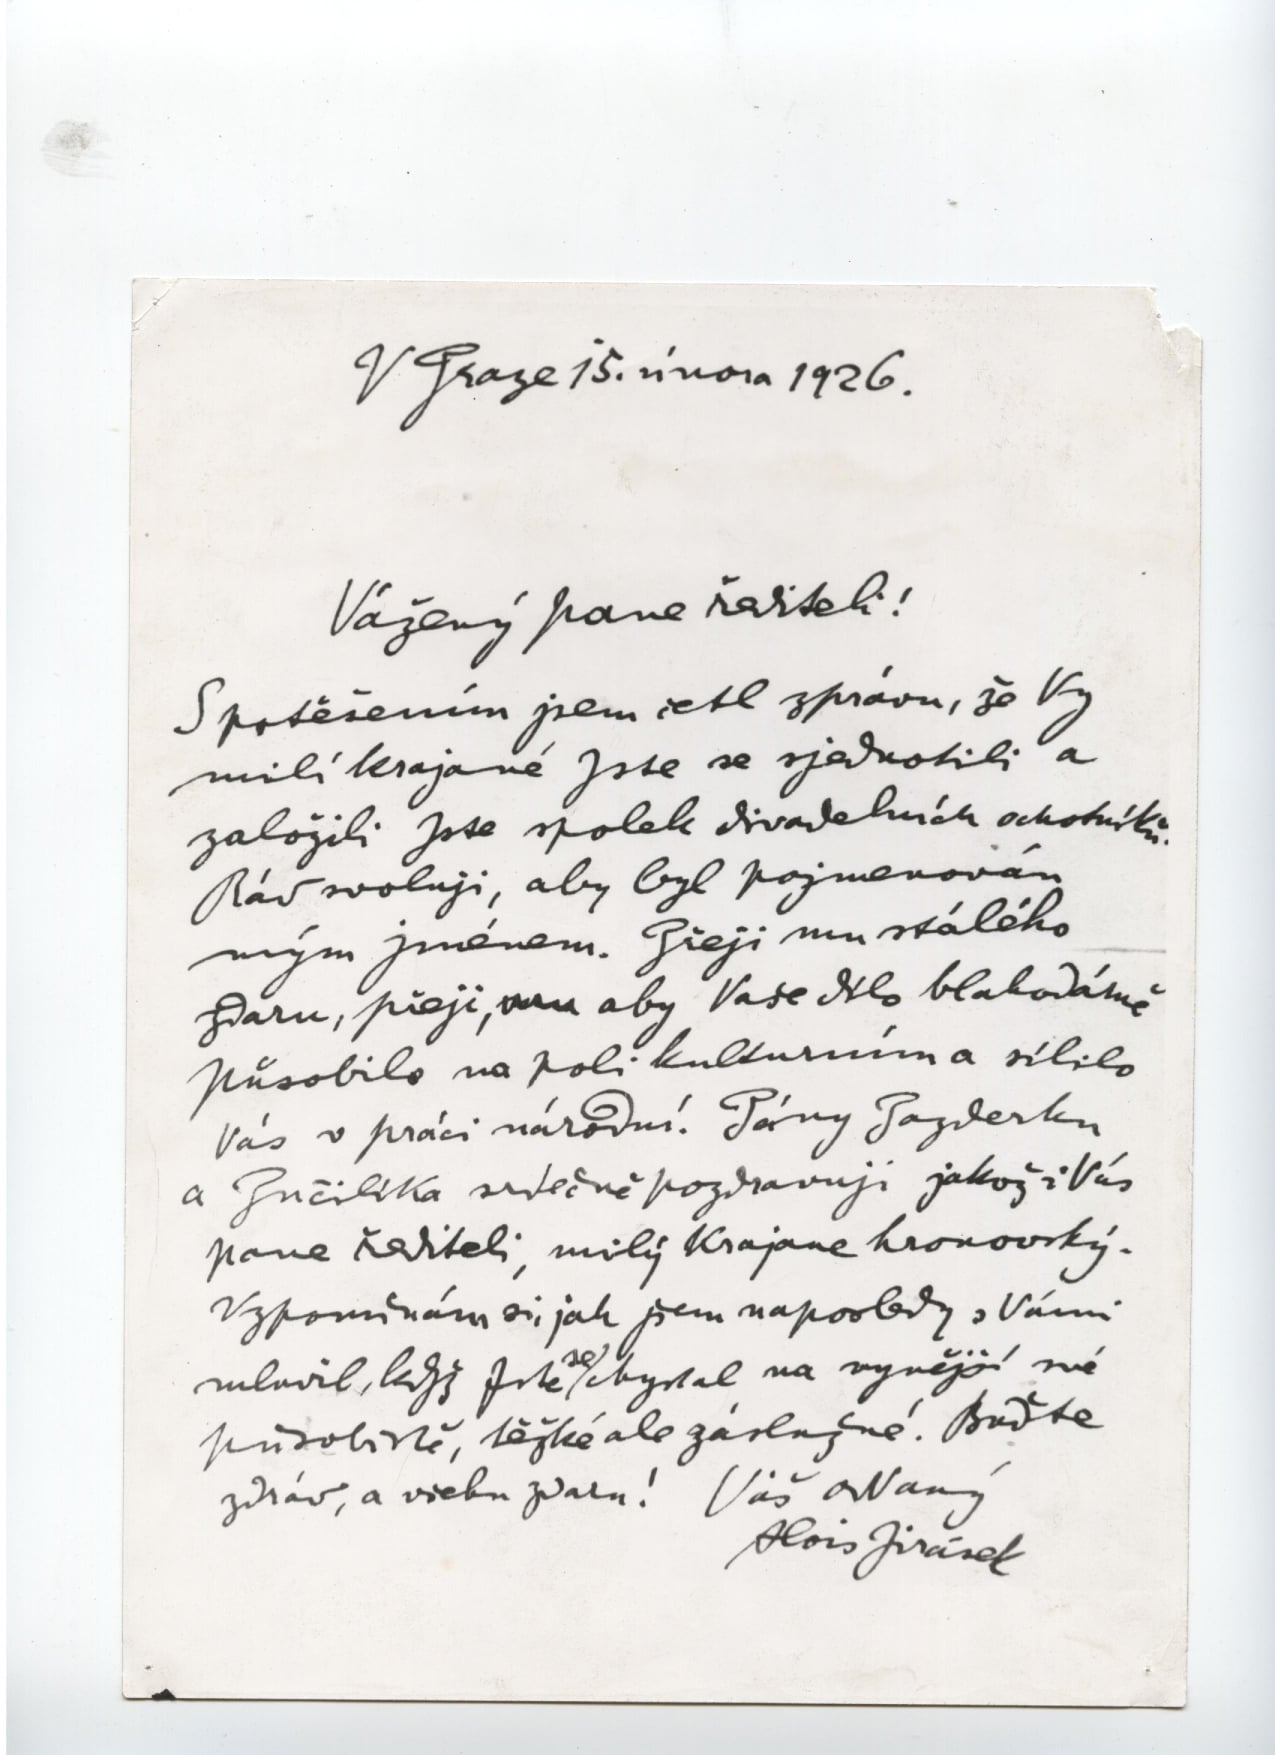 V Praze 15. února 1926.
Vážený pane řediteli!
S potěšením jsem četl zprávu, že Vy
milí krajané Jste se sjednotili a
založili Jste spolek divadelních ochotníků.
Rád svoluji, aby byl pojmenován
mým jménem. Přeji mu stálého
zdaru, přeji, aby Vaše dílo blahodárně
působilo na poli kulturním a sílilo
Vás v práci národní. Pány Pazderku
a srdečně pozdravuji jakož i Vás
pane řediteli, milý krajane hronovský.
Vzpomínám si, jak jsem naposledy s Vámi
mluvil, když Jste se chystal na nynější své
působiště, těžké ale záslužné. Buďte
zdráv, a všeho zdaru! Váš oddaný
Alois Jirásek